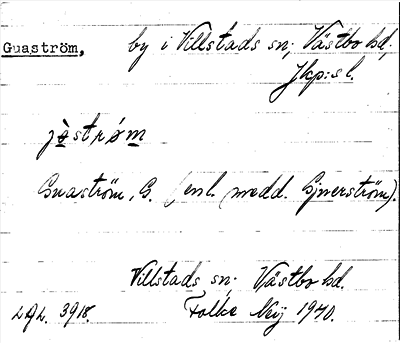 Guaström, by i Villstads sn; Västbo hd,
Jkp:s l.
jàström
Guaström, G. (enl. medd. Gjuerström).
Villstads sn. Västbo hd.
L.A.L. 3918. Folke Neij 1940.